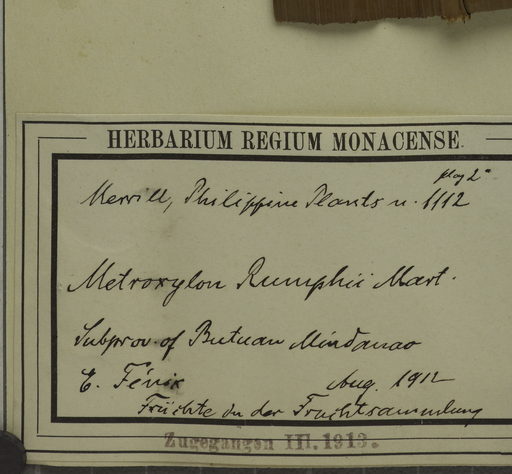 HERBARIUM REGIUM MONACENSE.
Merrill, Philippine Plants n. 1112
Metroxylon Rumphii Mart.
Subprov. of Butuan Mindanao
E. Fénix Aug. 1912
Früchte in der Fruchtsammlung
Zugegangen III. 1913.